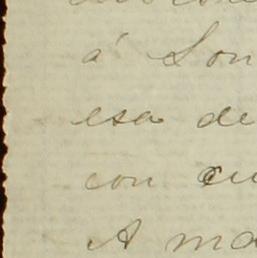 á Son
esa de
con cu
A ma